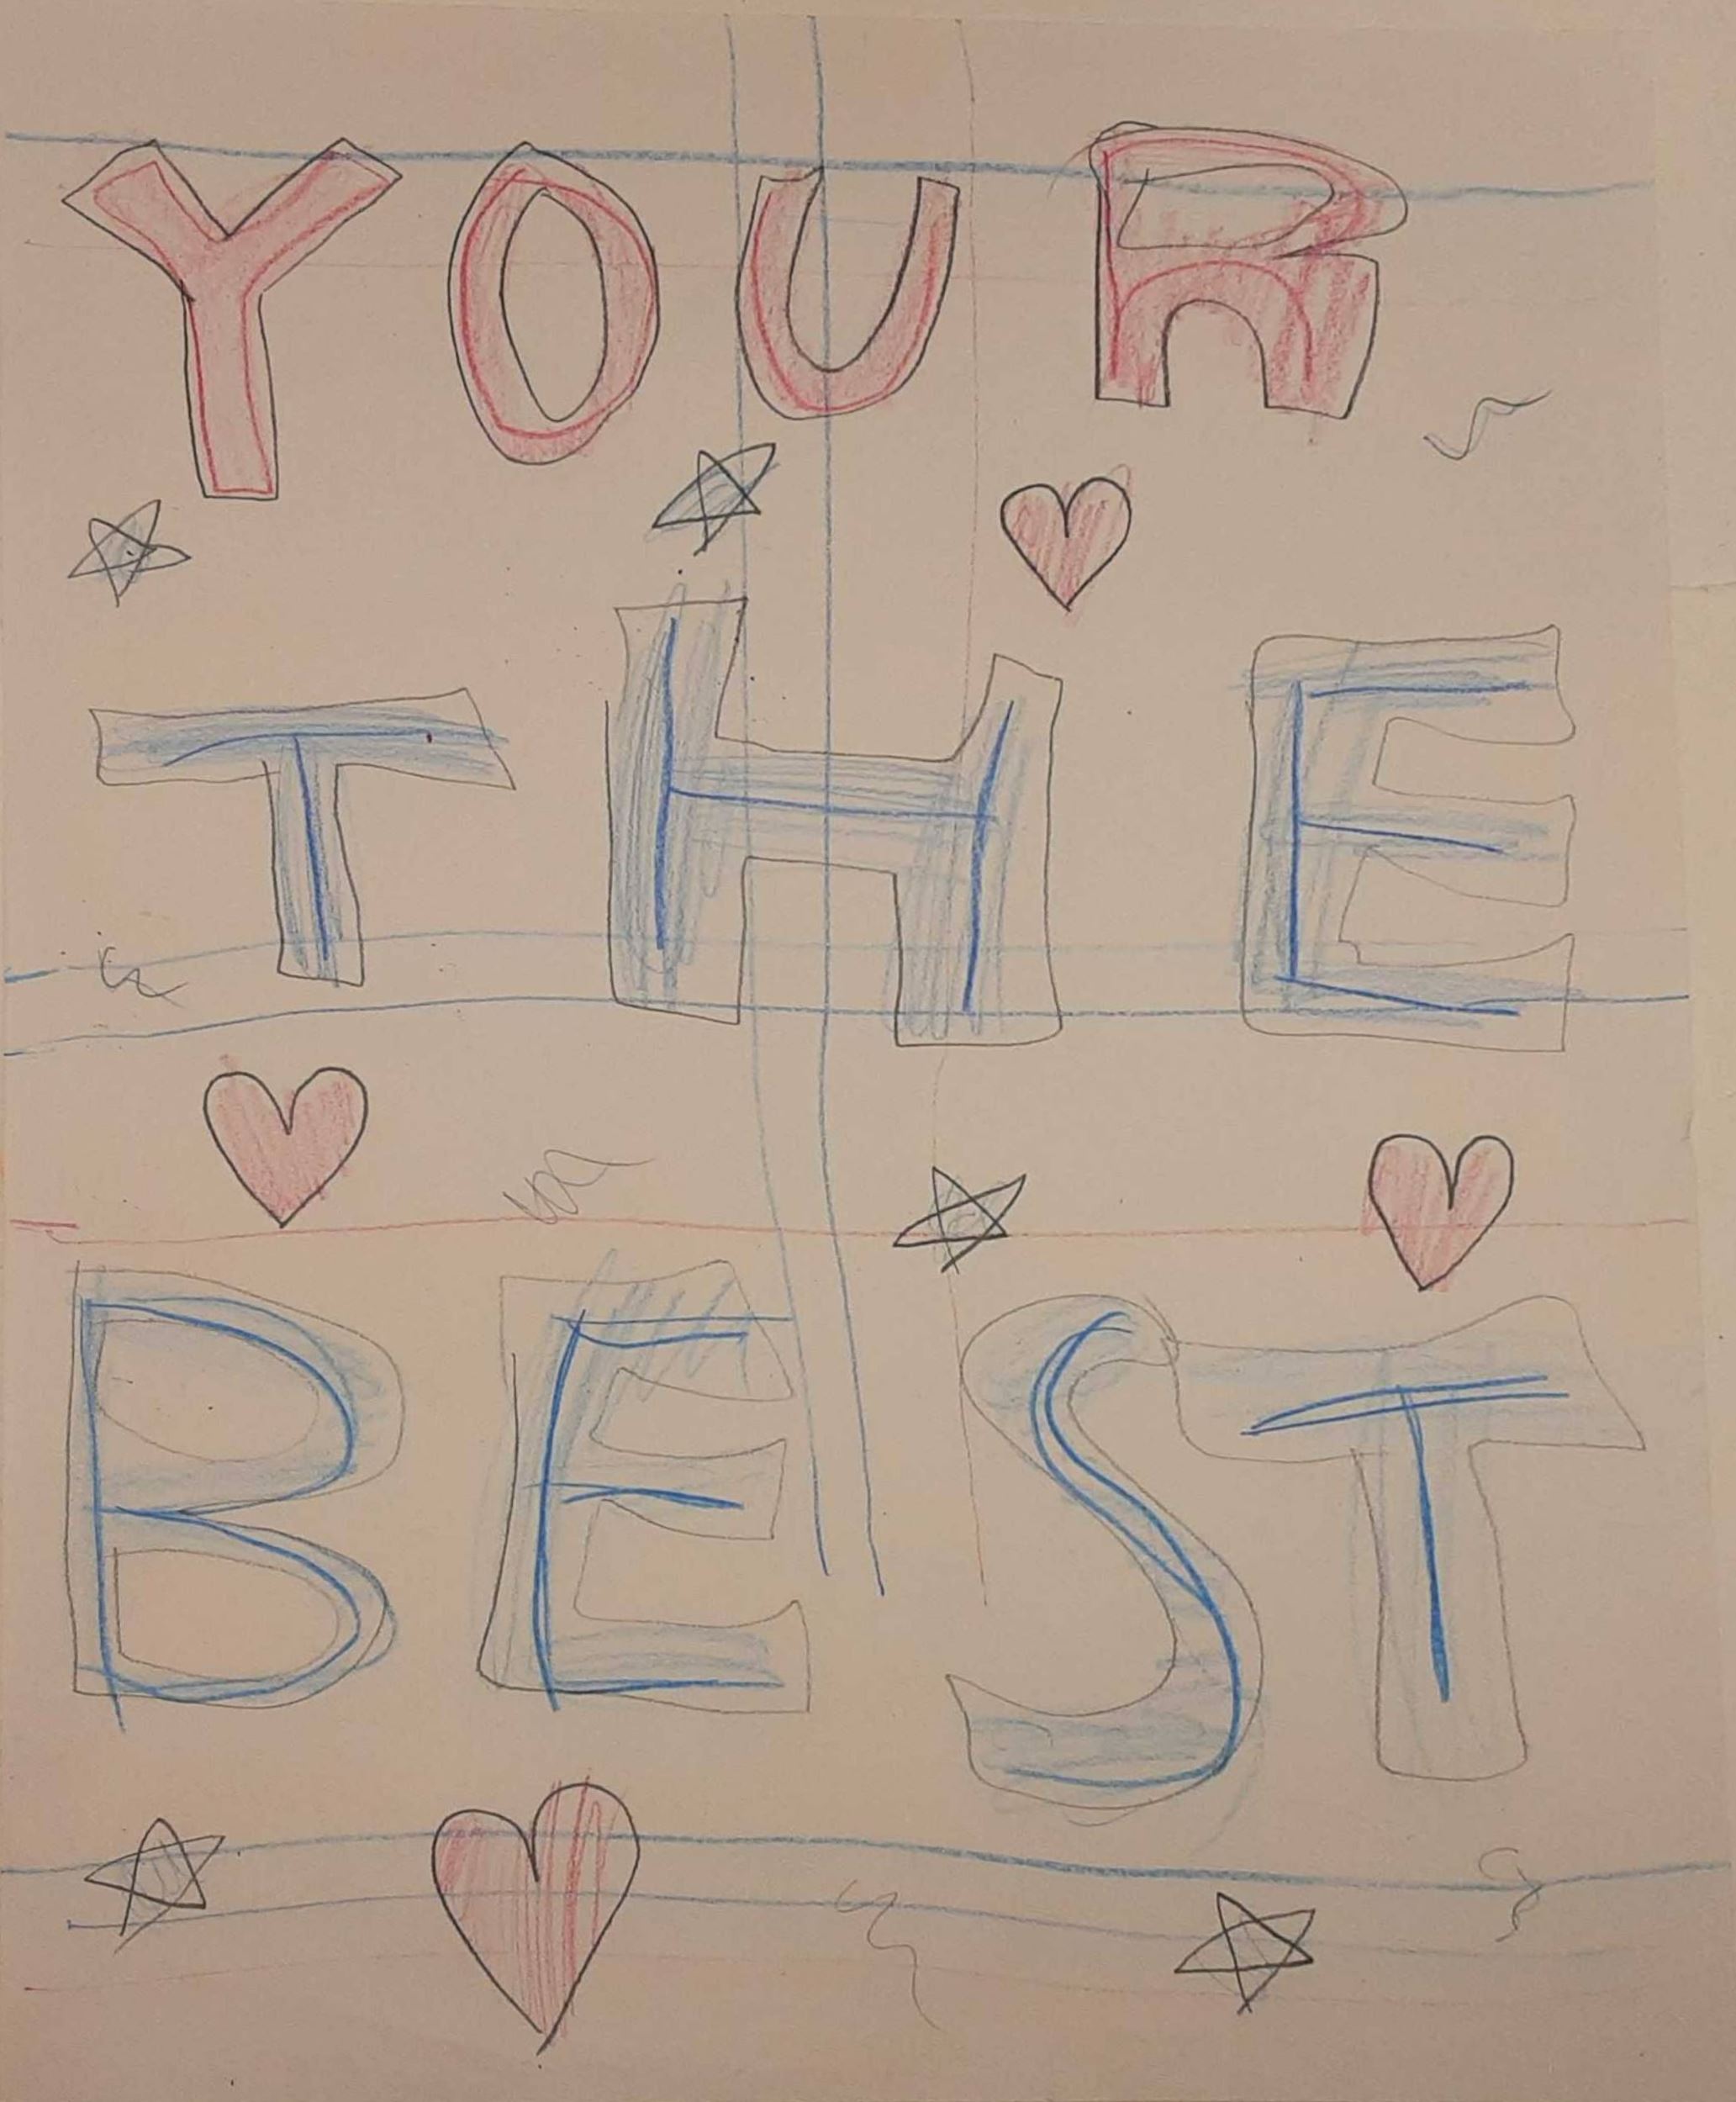 YOUR
THE
BEST